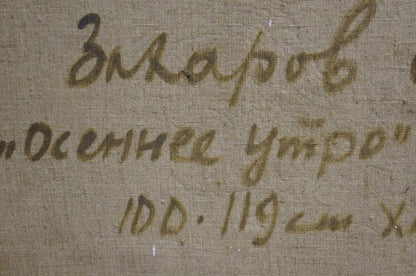 Захаров
„Осеннее утро"
100.119 см